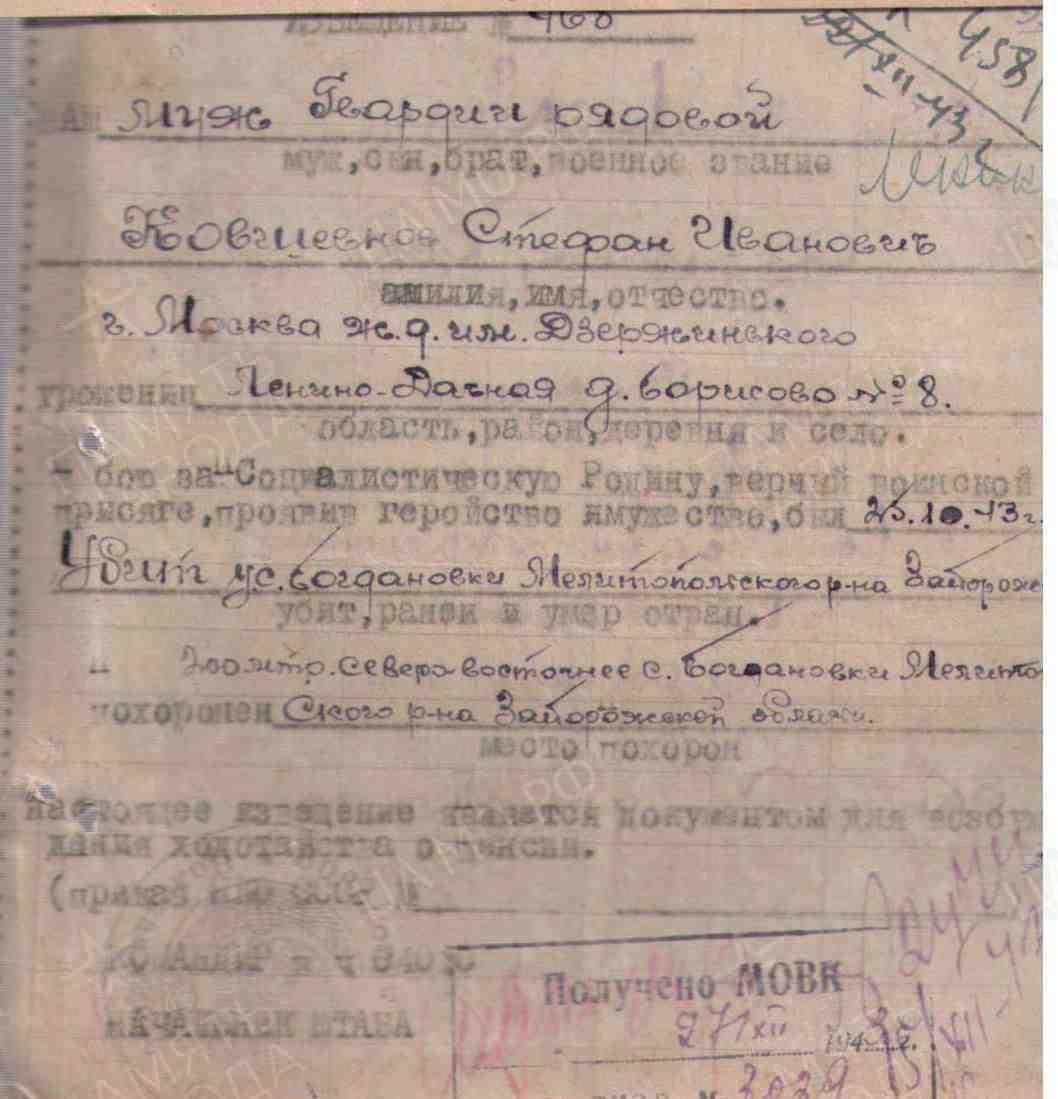 ИЗВЕЩЕНИЕ № 468
458
Ваш муж Гвардии рядовой
муж, сын, брат, военное звание
Стефан Иванович
фамилия, имя, отчество.
г. Москва ж.д. им. Дзержинского
уроженец Ленино-Дачная д. Борисово № 8.
область, район, деревня и село.
в бою за Социалистическую Родину, верный воинской
присяге, проявив геройство и мужество, был 25.10.43 г.
Убит у с. Богдановки Мелитопольского р-на Запорож
убит, ранен и умер от ран.
северо восточнее с. Богдановки Мелито
похоронен ского р-на Запорожской области.
место похорон
Настоящее извещение является документом для возбу
дения ходотайства о пенсии.
(приказ НКО СССР №
КОМАНДИР
Получено МОВК
НАЧАЛЬНИК ШТАБА
27/XII 1943 г.
3029